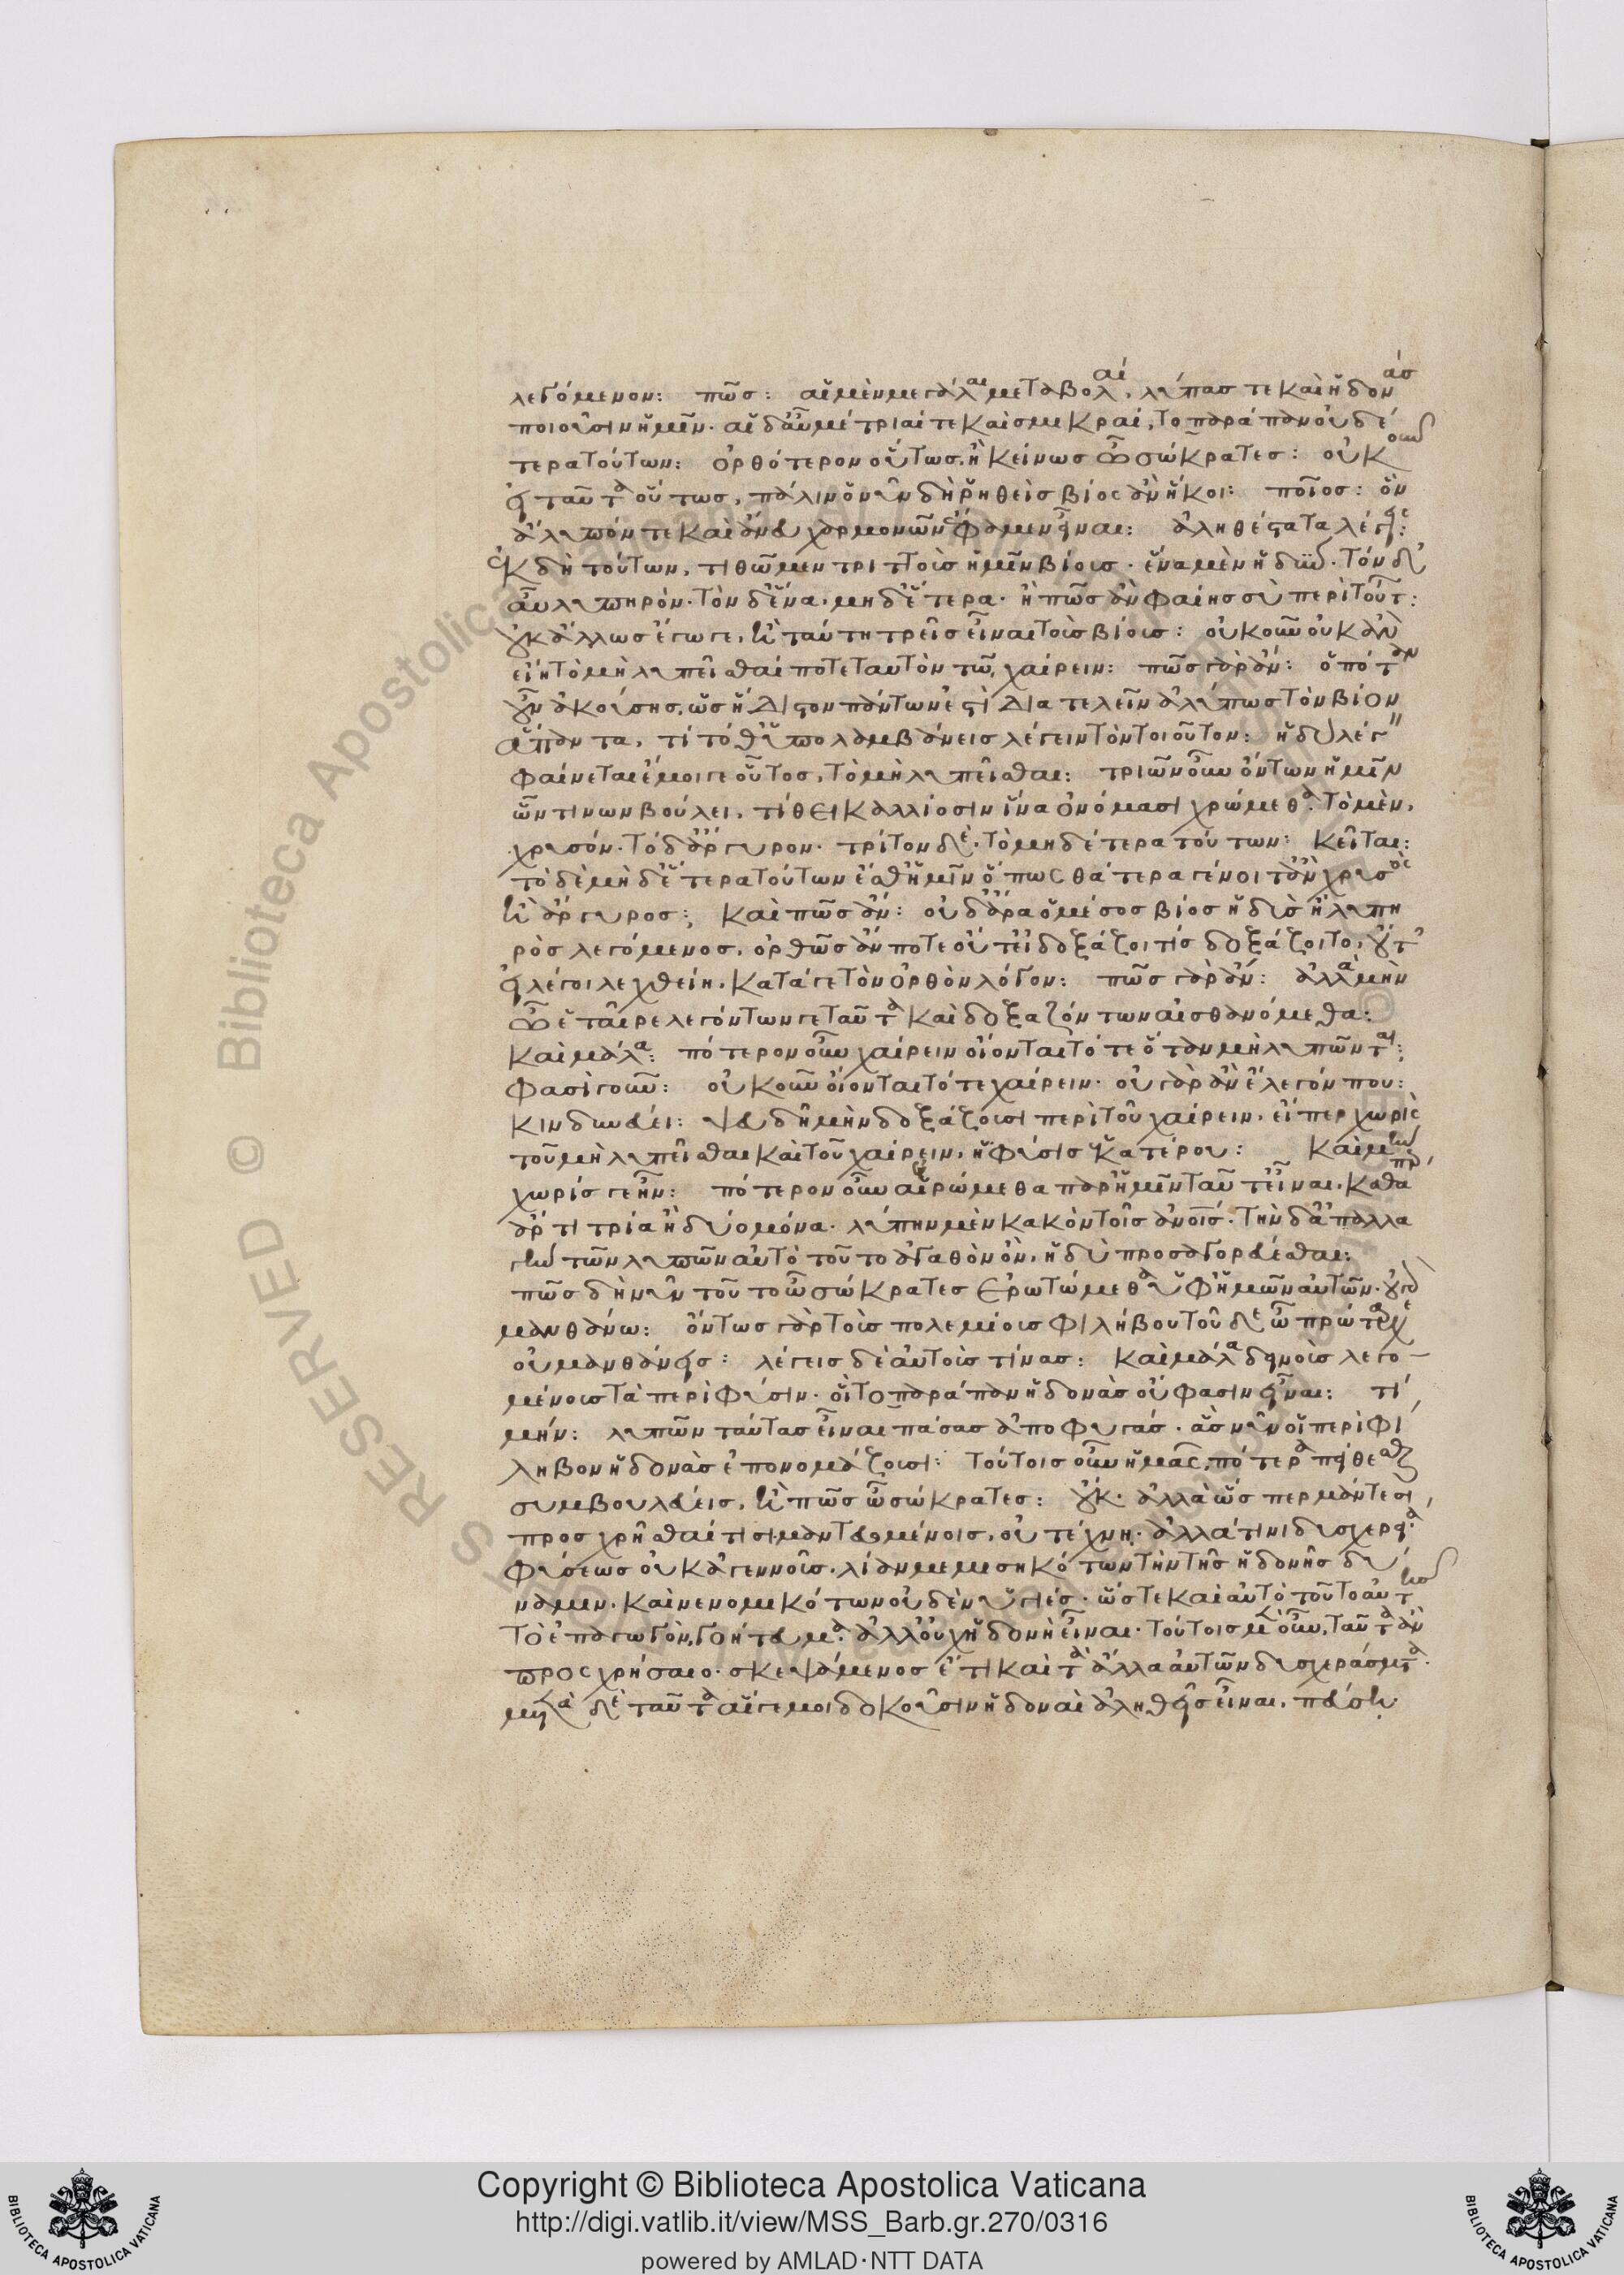 λεγόμενον: πῶς: αἱ μὲν μεγάλαι μεταβολαί, λύπας τε καὶ ἡδονάς
ποιοῦσιν ἡμῖν· αἱ δ' αὖ μέτριαί τε καὶ σμικραί, τὸ παράπαν οὐδέ
τερα τούτων: ὀρθότερον οὕτως ἢ κείνως ὦ σώκρατες: οὐκοῦν
εἰ ταῦτα οὕτως, πάλιν ὁ νῦν δὴ ῥηθεὶς βίος ἂν ἥκοι: ποῖος: ὃν
ἄλυπόν τε καὶ ἄνευ χαρμονῶν ἔφαμεν εἶναι: ἀληθέστατα λέγεις:
ἐκ δὴ τούτων, τιθῶμεν τριττοὺς ἡμῖν βίους· ἕνα μὲν ἡδύν· τὸν δ'
αὖ λυπηρόν· τὸν δ' ἕνα, μηδέτερα· ἢ πῶς ἂν φαίης σὺ περὶ τούτων:
οὐκ ἄλλως ἔγωγε, ἢ ταύτῃ τρεῖς εἶναι τοὺς βίους: οὐκοῦν οὐκ ἂν
εἴη τὸ μὴ λυπεῖσθαί ποτε ταυτὸν τῷ χαίρειν: πῶς γὰρ ἄν: ὁπόταν
οὖν ἀκούσῃς, ὡς ἥδιστον πάντων ἐστὶ διατελεῖν ἀλύπως τὸν βίον
ἅπαντα, τί τόθ' ὑπολαμβάνεις λέγειν τὸν τοιοῦτον: ἡδὺ λέγειν
φαίνεται ἔμοιγε οὗτος, τὸ μὴ λυπεῖσθαι: τριῶν οὖν ὄντων ἡμῖν
ὧν τινων βούλει, τίθει καλλίοσιν ἵνα ὀνόμασι χρώμεθα· τὸ μὲν,
χρυσόν· τὸ δ' ἄργυρον· τρίτον δὲ, τὸ μηδέτερα τούτων: κεῖται:
τὸ δὲ μηδέτερα τούτων ἔσθ' ἡμῖν ὅπως θάτερα γένοιτ' ἂν χρυσὸς
ἢ ἄργυρος: καὶ πῶς ἄν: οὐδ' ἄρα ὁ μέσος βίος ἡδὺς ἢ λυπη
ρὸς λεγόμενος, ὀρθῶς ἄν ποτε οὔτ' εἰ δοξάζοι τις δοξάζοιτο, οὔτ'
εἰ λέγοι λεχθείη, κατά γε τὸν ὀρθὸν λόγον: πῶς γὰρ ἄν: ἀλλὰ μὴν
ὦ ἑταῖρε λεγόντων γε ταῦτα καὶ δοξαζόντων αἰσθανόμεθα:
καὶ μάλα: πότερον οὖν χαίρειν οἴονται τότε ὅταν μὴ λυπῶνται:
φασὶ γοῦν: οὐκοῦν οἴονται τότε χαίρειν· οὐ γὰρ ἂν ἔλεγόν που:
κινδυνεύει: ψευδῆ μὴν δοξάζουσι περὶ τοῦ χαίρειν, εἴπερ χωρὶς
τοῦ μὴ λυπεῖσθαι καὶ τοῦ χαίρειν, ἡ φύσις ἑκατέρου: καὶ μὴν
χωρίς γε ἦν: πότερον οὖν αἱρώμεθα παρ' ἡμῖν ταῦτ' εἶναι, καθάπερ
ἄρτι τρία ἢ δύο μόνα· λύπην μὲν κακὸν τοῖς ἀνοις· τὴν δ' ἀπαλλα
γὴν τῶν λυπῶν αὐτὸ τοῦτο ἀγαθὸν ὂν, ἡδὺ προσαγορεύεσθαι:
πῶς δὴ νῦν τοῦτο ὦ σώκρατες ἐρωτώμεθα ὑφ' ἡμῶν αὐτῶν· οὐ γὰρ
μανθάνω: ὄντως γὰρ τοὺς πολεμίους φιλήβου τοῦδε ὦ πρώταρχε
οὐ μανθάνεις: λέγεις δὲ αὐτοὺς τίνας: καὶ μάλα δεινοὺς λεγο-
μένους τὰ περὶ φύσιν· οἳ τὸ παράπαν ἡδονὰς οὔ φασιν εἶναι: τί
μήν: λυπῶν ταύτας εἶναι πάσας ἀποφυγάς· ἃς νῦν οἱ περὶ φί
ληβον ἡδονὰς ἐπονομάζουσι: τούτοις οὖν ἡμᾶς πότερα πείθεσθαι
συμβουλεύεις, ἢ πῶς ὦ σώκρατες: οὔκ· ἀλλὰ ὥσπερ μάντεσι
προσχρῆσθαί τισι μαντευομένοις, οὐ τέχνῃ· ἀλλά τινι δυσχερείᾳ
φύσεως οὐκ ἀγεννοῦς, λίαν μεμισηκότων τὴν τῆς ἡδονῆς δύ
ναμιν, καὶ νενομικότων οὐδὲν ὑγιές· ὥστε καὶ αὐτὸ τοῦτο αὐτῆς
τὸ ἐπαγωγὸν, γοήτευμα· ἀλλ' οὐχ ἡδονὴ εἶναι· τούτοις μὲν οὖν, ταῦτα ἂν
προσχρήσαιο· σκεψάμενος ἔτι καὶ τὰ ἄλλα αὐτῶν δυσχεράσματα·
μετὰ δὲ ταῦτα αἵ γέ μοι δοκοῦσιν ἡδοναὶ ἀληθεῖς εἶναι, πεύσῃ·
Copyright © Biblioteca Apostolica Vaticana
http://digi.vatlib.it/view/MSS_Barb.gr.270/0316
powered by AMLAD·NTT DATA